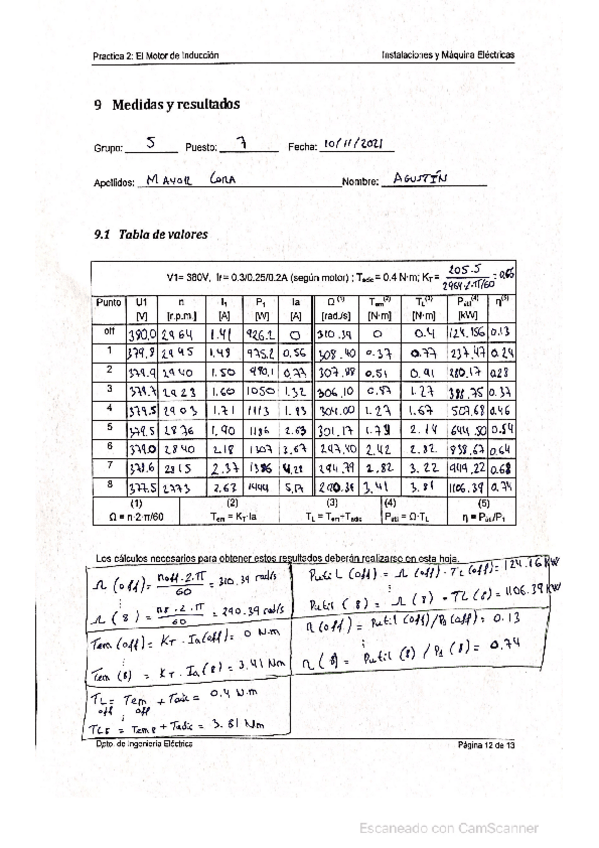 Practica 2: El Motor de Inducción Instalaciones y Máquina Eléctricas
9 Medidas y resultados
Grupo: 5 Puesto: 7 Fecha: 10/11/2021
Apellidos: MAYOR LORA Nombre: AGUSTÍN
9.1 Tabla de valores
V1= 380V, Ir= 0.3/0.25/0.2A (según motor) ; Tadic= 0.4 N·m; KT= 205.5 / 2964·2·π/60 = 0.66
Punto U1 [V] n [r.p.m.] I1 [A] P1 [W] Ia [A] Ω (1) [rad./s] Tem(2) [N·m] TL(3) [N·m] Putil(4) [kW] η(5)
off 380,0 2964 1.41 926.2 0 310.39 0 0.4 124.156 0.13
1 379.8 2945 1.48 975.2 0,56 308.40 0.37 0.77 237.47 0.24
2 379.9 2940 1.50 980,1 0,77 307.88 0.51 0.91 280.17 0.28
3 379.7 2923 1.60 1050 1.32 306.10 0.87 1.27 388.75 0.37
4 379,5 2903 1.71 1113 1.93 304.00 1.27 1.67 507.68 0.46
5 379,5 2876 1.90 1186 2.63 301.17 1.73 2.14 644.50 0.54
6 379.0 2840 2.18 1307 3.67 297.40 2.42 2.82 838.67 0.64
7 378.6 2815 2.37 1386 4.28 294.79 2.82 3.22 949.22 0.68
8 377.5 2773 2.63 1444 5,17 290.39 3.41 3.81 1106.39 0.74
(1) (2) (3) (4) (5)
Ω = n·2·π/60 Tem = KT·Ia TL = Tem+Tadic Putil = Ω·TL η = Putil/P1
Los cálculos necesarios para obtener estos resultados deberán realizarse en esta hoja.
Ω (off) = noff·2·π / 60 = 310.39 rad/s
⋮
Ω (8) = n8·2·π / 60 = 290.39 rad/s
Tem (off) = KT · Ia (off) = 0 N·m
⋮
Tem (8) = KT · Ia (8) = 3.41 Nm
TL off = Tem off + Tadic = 0.4 N·m
⋮
TL8 = Tem8 + Tadic = 3.81 Nm
Putil (off) = Ω (off) · TL (off) = 124.16 KW
⋮
Putil (8) = Ω (8) · TL (8) = 1106.39 KW
η (off) = Putil (off) / P1 (off) = 0.13
⋮
η (8) = Putil (8) / P1 (8) = 0.74
Dpto. de Ingeniería Eléctrica Página 12 de 13
Escaneado con CamScanner